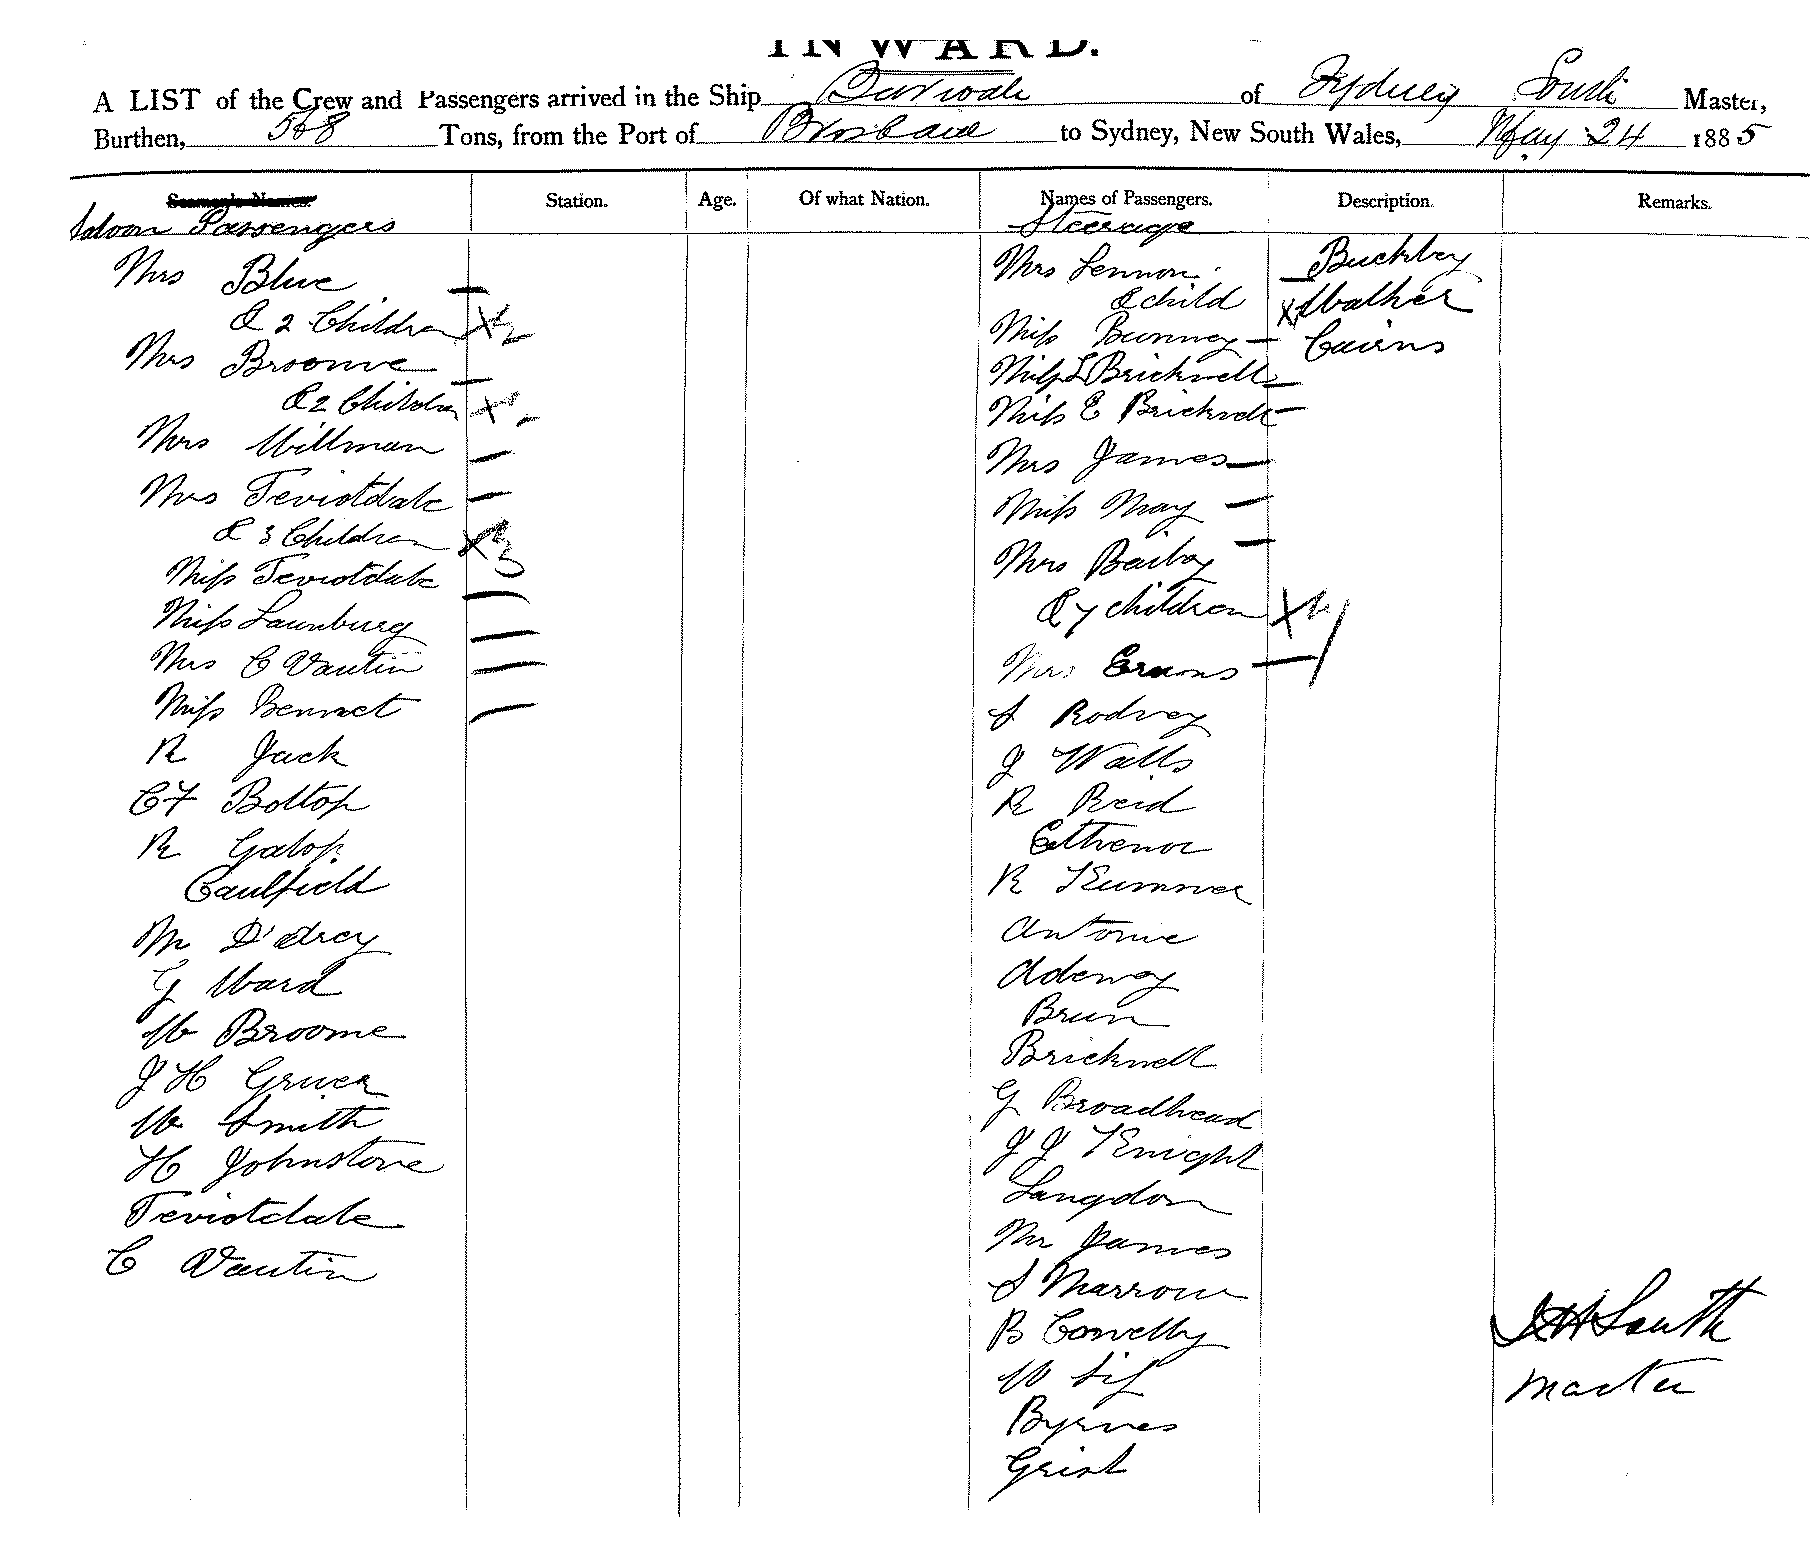 INWARD.
A LIST of the Crew and Passengers arrived in the Ship of Sydney Master,
Burthen, 568 Tons, from the Port of Brisbane to Sydney, New South Wales, May 24 1885
Seamen's Names. Station. Age. Of what Nation. Names of Passengers. Description. Remarks.
Saloon Passengers
Mrs Blue
& 2 Children X 2
Mrs Broome
& 2 Children X
Mrs Willman
Mrs Teviotdale
& 3 Children X 3
Miss Teviotdale
Miss Launburg
Mrs C Vautin
Miss Bennet
R Jack
C F Boltop
R Galop
Caulfield
M D'Arcy
G Ward
W Broome
J H Gruer
W Smith
H Johnstone
Teviotdale
C Vautin
Steerage
Mrs Lennon
& child
Miss Bunney
Miss L Bricknell
Miss E Bricknell
Mrs James
Miss May
Mrs Bailey
& 7 children X 7
Mrs Evans
S Rodney
J Watts
R Reid
R Kummer
Antonie
Adeney
Brun
Bricknell
G Broadhead
J J Knight
Langdon
Mr James
S Marrow
B Conelly
W
Byrnes
Grist
Buckley
X Walker
Cairns
South
Master